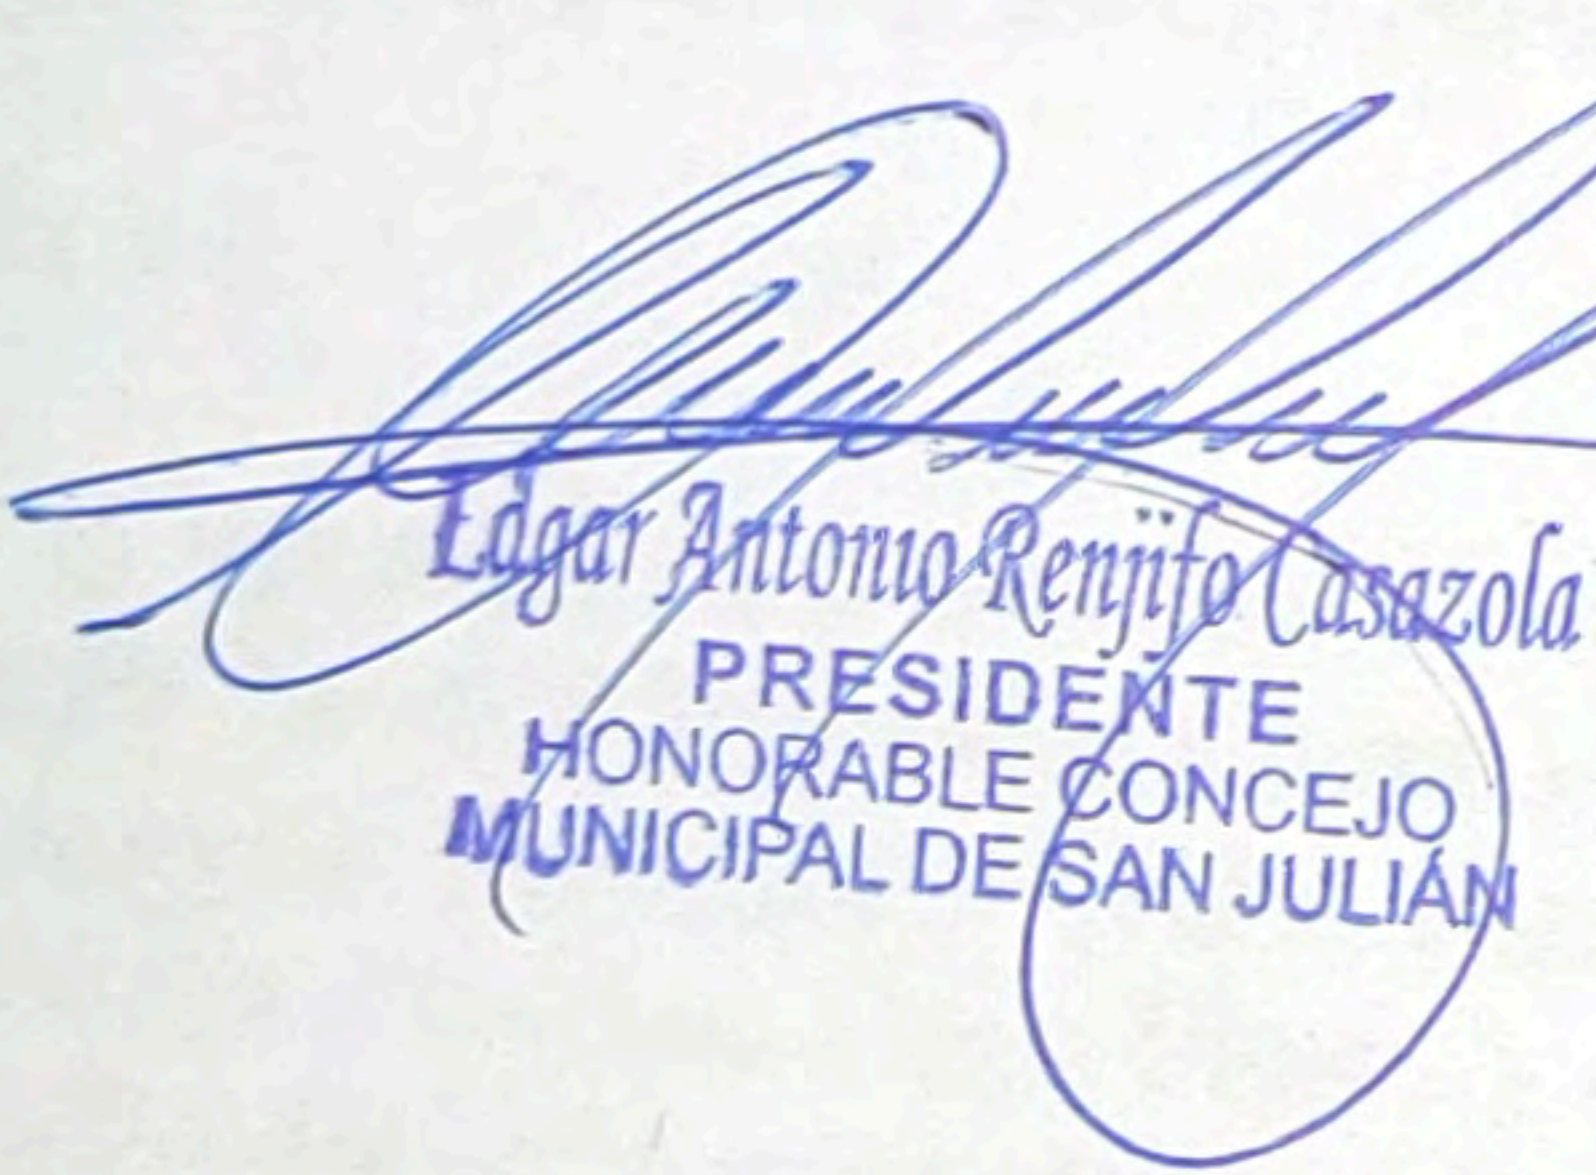 Edgar Antonio Renjifo Casazola
PRESIDENTE
HONORABLE CONCEJO
MUNICIPAL DE SAN JULIÁN